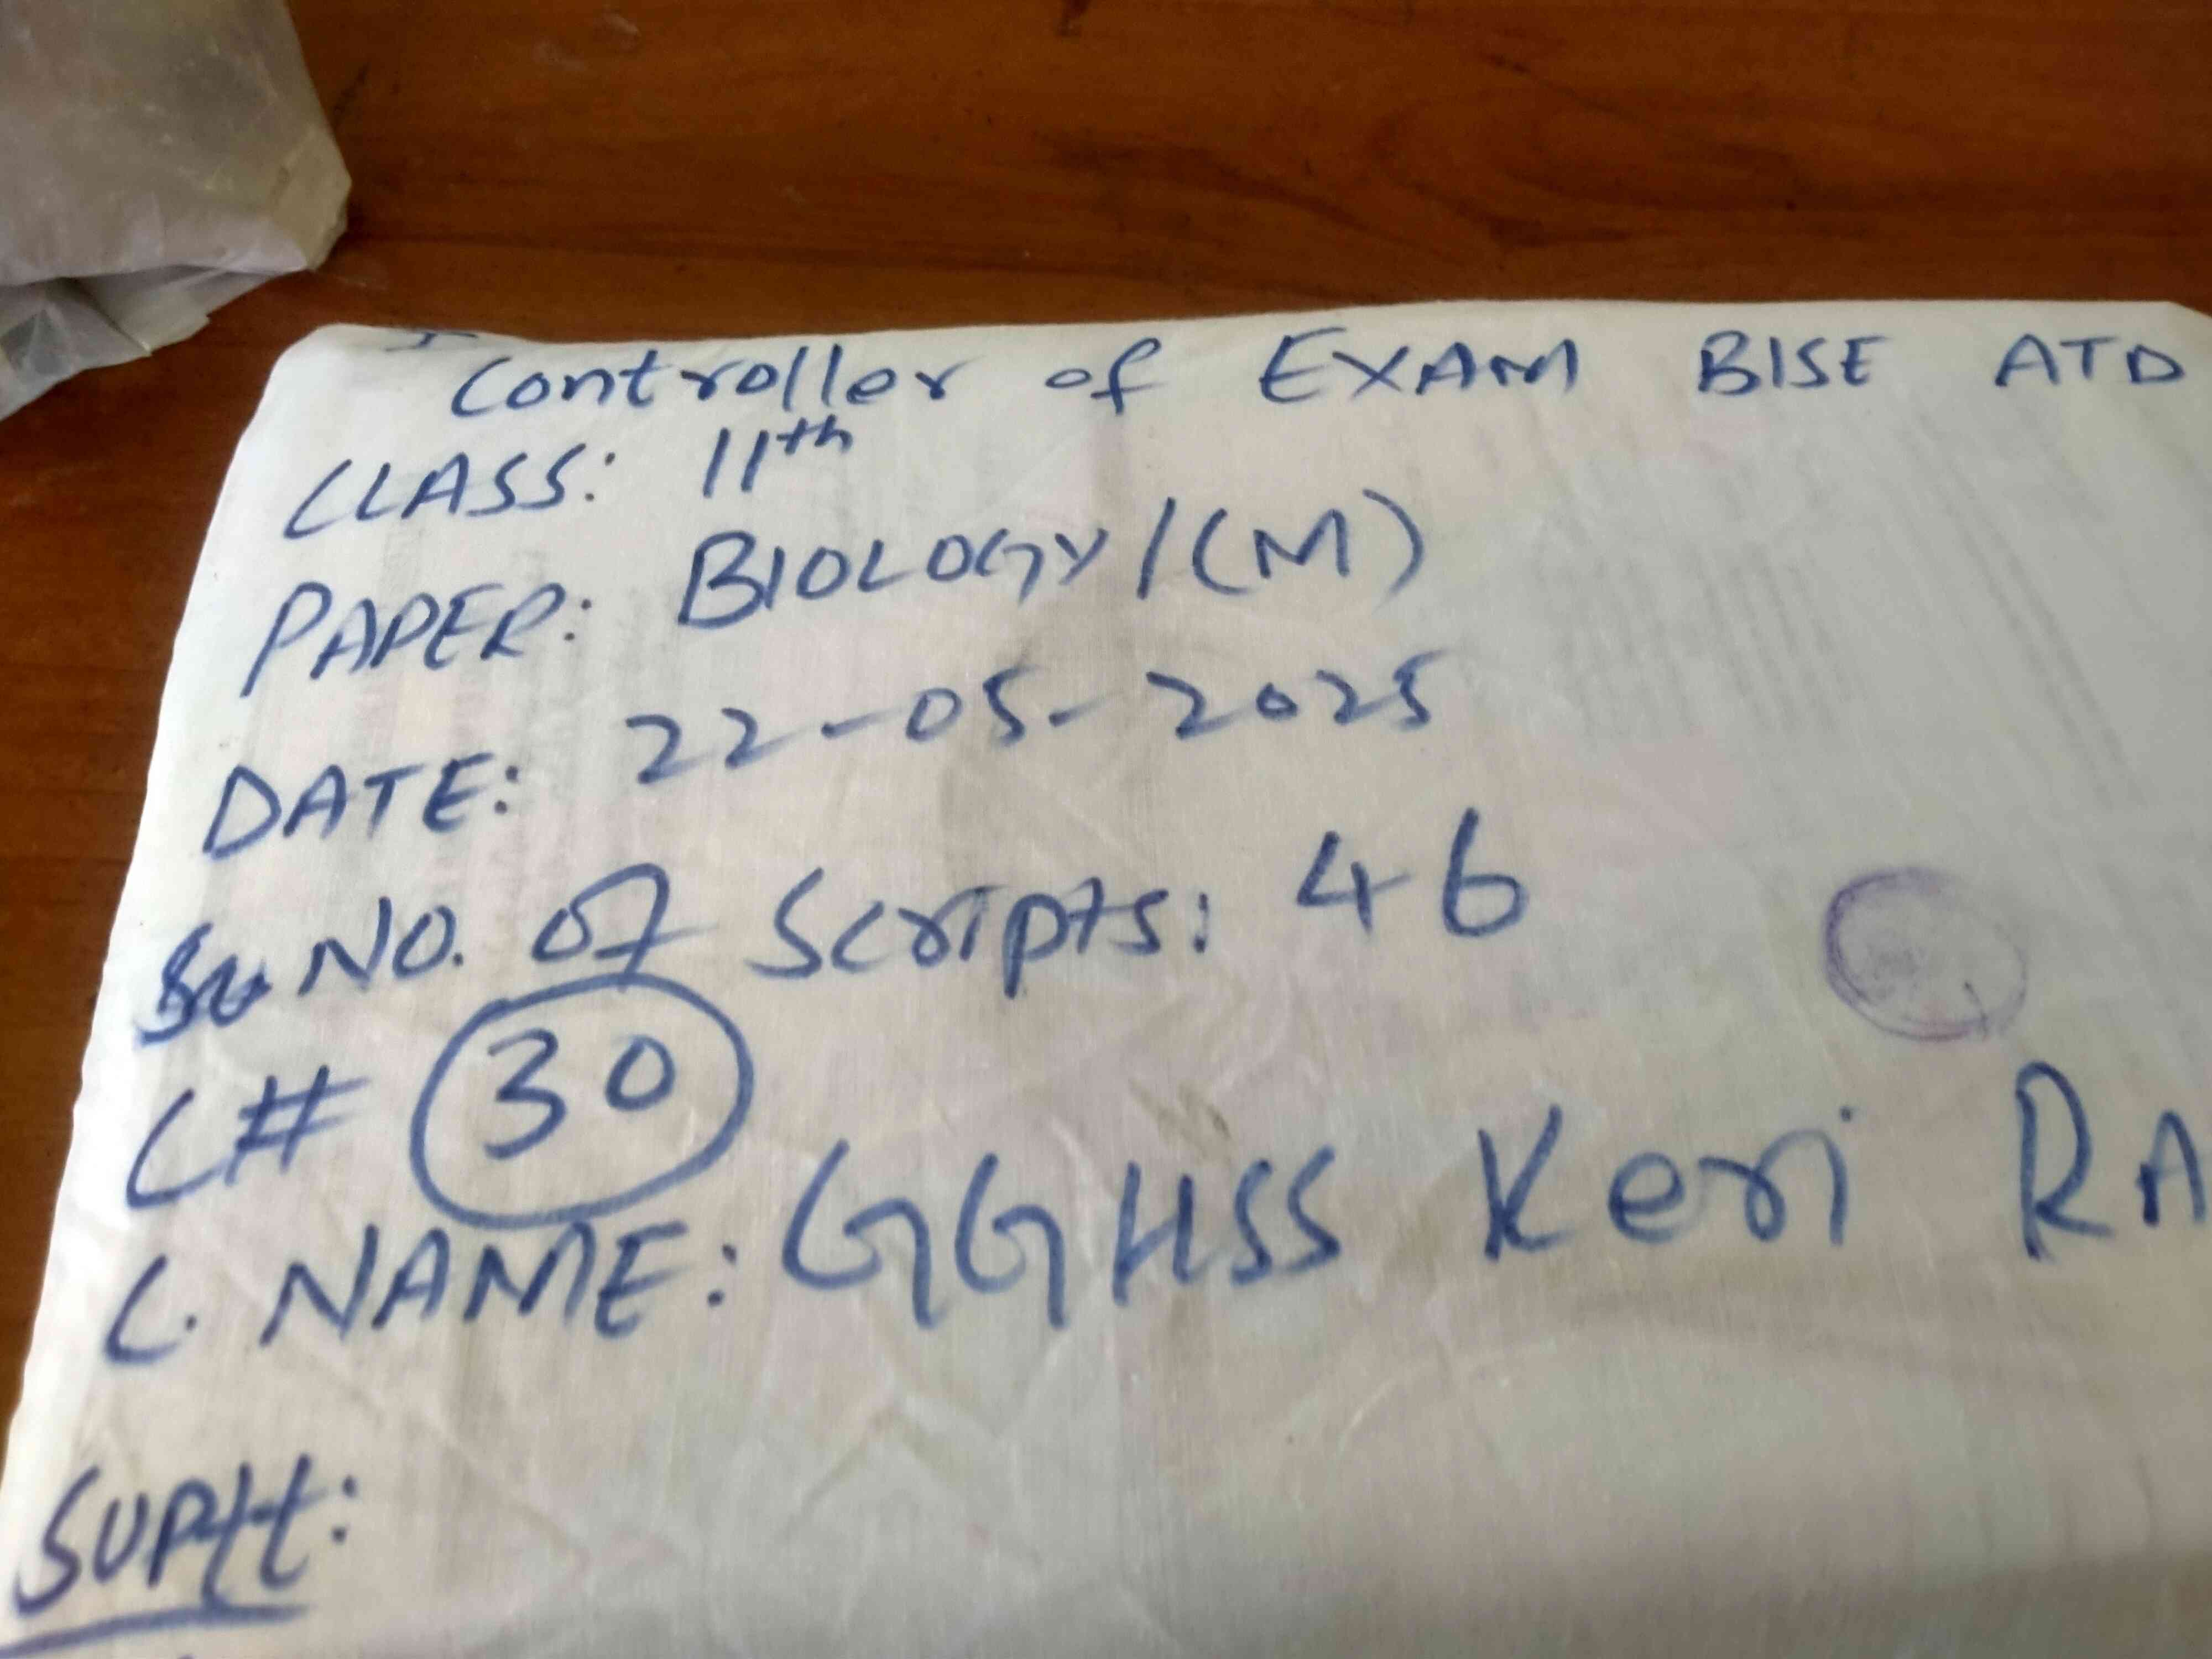 Controller of EXAM BISE ATD
CLASS: 11th
PAPER: BIOLOGY/(M)
DATE: 22-05-2025
NO. of Scripts: 46
C# 30
C. NAME: GGHSS Keri RA
SUPtt: